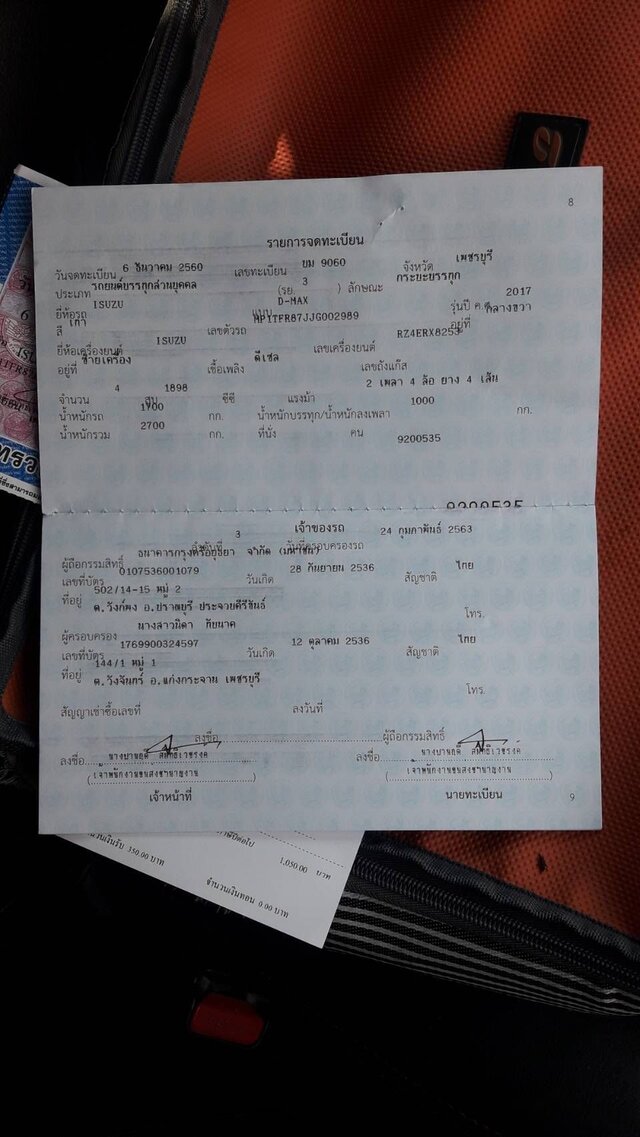 8
รายการจดทะเบียน
วันจดทะเบียน 6 ธันวาคม 2560 เลขทะเบียน ยม 9060 จังหวัด เพชรบุรี
ประเภท รถยนต์บรรทุกส่วนบุคคล (รย 3 ) ลักษณะ กระบะบรรทุก
ยี่ห้อรถ ISUZU แบบ D-MAX รุ่นปี ค.ศ. 2017
สี เทา เลขตัวรถ MP1TFR87JJG002989 อยู่ที่ กลางขวา
ยี่ห้อเครื่องยนต์ ISUZU เลขเครื่องยนต์ RZ4ERX8253
อยู่ที่ ซ้ายเครื่อง เชื้อเพลิง ดีเซล เลขถังแก๊ส
จำนวน 4 สูบ 1898 ซีซี แรงม้า 2 เพลา 4 ล้อ ยาง 4 เส้น
น้ำหนักรถ 1700 กก. น้ำหนักบรรทุก/น้ำหนักลงเพลา 1000 กก.
น้ำหนักรวม 2700 กก. ที่นั่ง คน 9200535
9200535
เจ้าของรถ
ลำดับที่ 3 วันที่ครอบครองรถ 24 กุมภาพันธ์ 2563
ผู้ถือกรรมสิทธิ์ ธนาคารกรุงศรีอยุธยา จำกัด (มหาชน)
เลขที่บัตร 0107536001079 วันเกิด 28 กันยายน 2536 สัญชาติ ไทย
ที่อยู่ 502/14-15 หมู่ 2
ต.วังก์พง อ.ปราณบุรี ประจวบคีรีขันธ์ โทร.
ผู้ครอบครอง นางสาวนิดา กียนาค
เลขที่บัตร 1769900324597 วันเกิด 12 ตุลาคม 2536 สัญชาติ ไทย
ที่อยู่ 144/1 หมู่ 1
ต.วังจันทร์ อ.แก่งกระจาน เพชรบุรี โทร.
สัญญาเช่าซื้อเลขที่ ลงวันที่
ลงชื่อ ผู้ถือกรรมสิทธิ์
ลงชื่อ ลงชื่อ
(เจ้าพนักงานขนส่งชำนาญงาน) (เจ้าพนักงานขนส่งชำนาญงาน)
เจ้าหน้าที่ นายทะเบียน
9
1,050.00 บาท
จำนวนเงินรับ 350.00 บาท
จำนวนเงินทอน 0.00 บาท